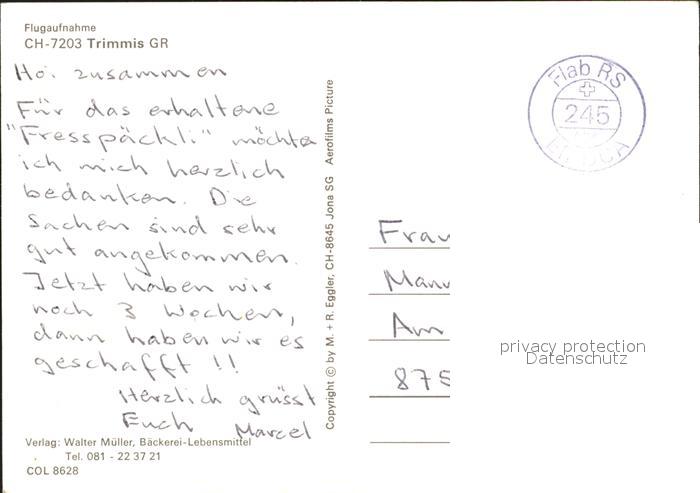 Flugaufnahme
CH-7203 Trimmis GR
Hoi zusammen
Für das erhaltene
"Fresspäckli" möchte
ich mich herzlich
bedanken. Die
Sachen sind sehr
gut angekommen.
Jetzt haben wir
noch 3 Wochen,
dann haben wir es
geschafft !!
Herzlich grüsst
Euch Marcel
Verlag: Walter Müller, Bäckerei-Lebensmittel
Tel. 081 - 22 37 21
COL 8628
Copyright © by M. + R. Eggler, CH-8645 Jona SG Aerofilms Picture
Flab RS
245
Frau
Manu
Am
875
privacy protection
Datenschutz